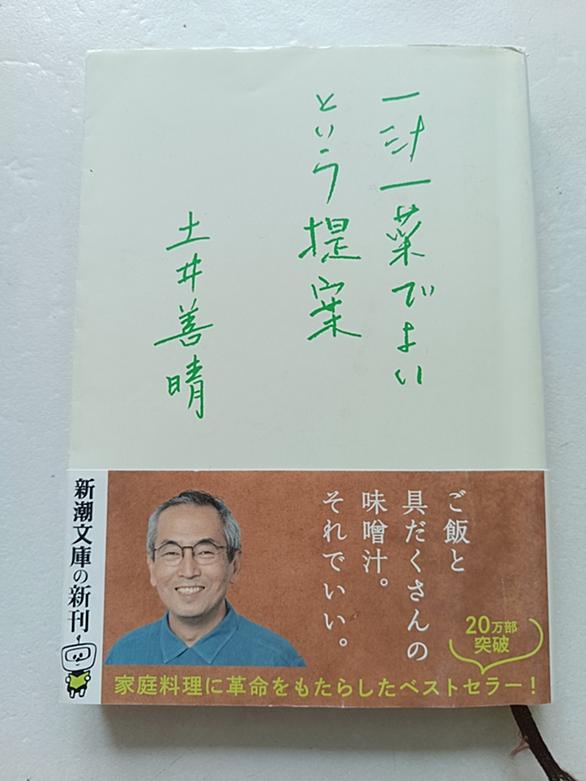 一汁一菜でよい
という提案
土井善晴
新潮文庫の新刊
ご飯と
具だくさんの
味噌汁。
それでいい。
20万部
突破
家庭料理に革命をもたらしたベストセラー！